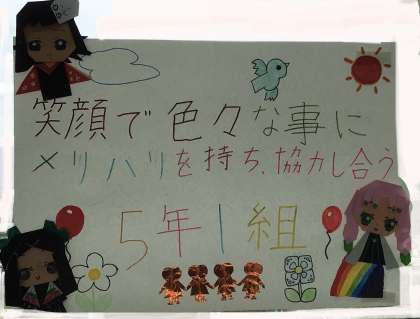 笑顔で色々な事に
メリハリを持ち、協力し合う
5年1組